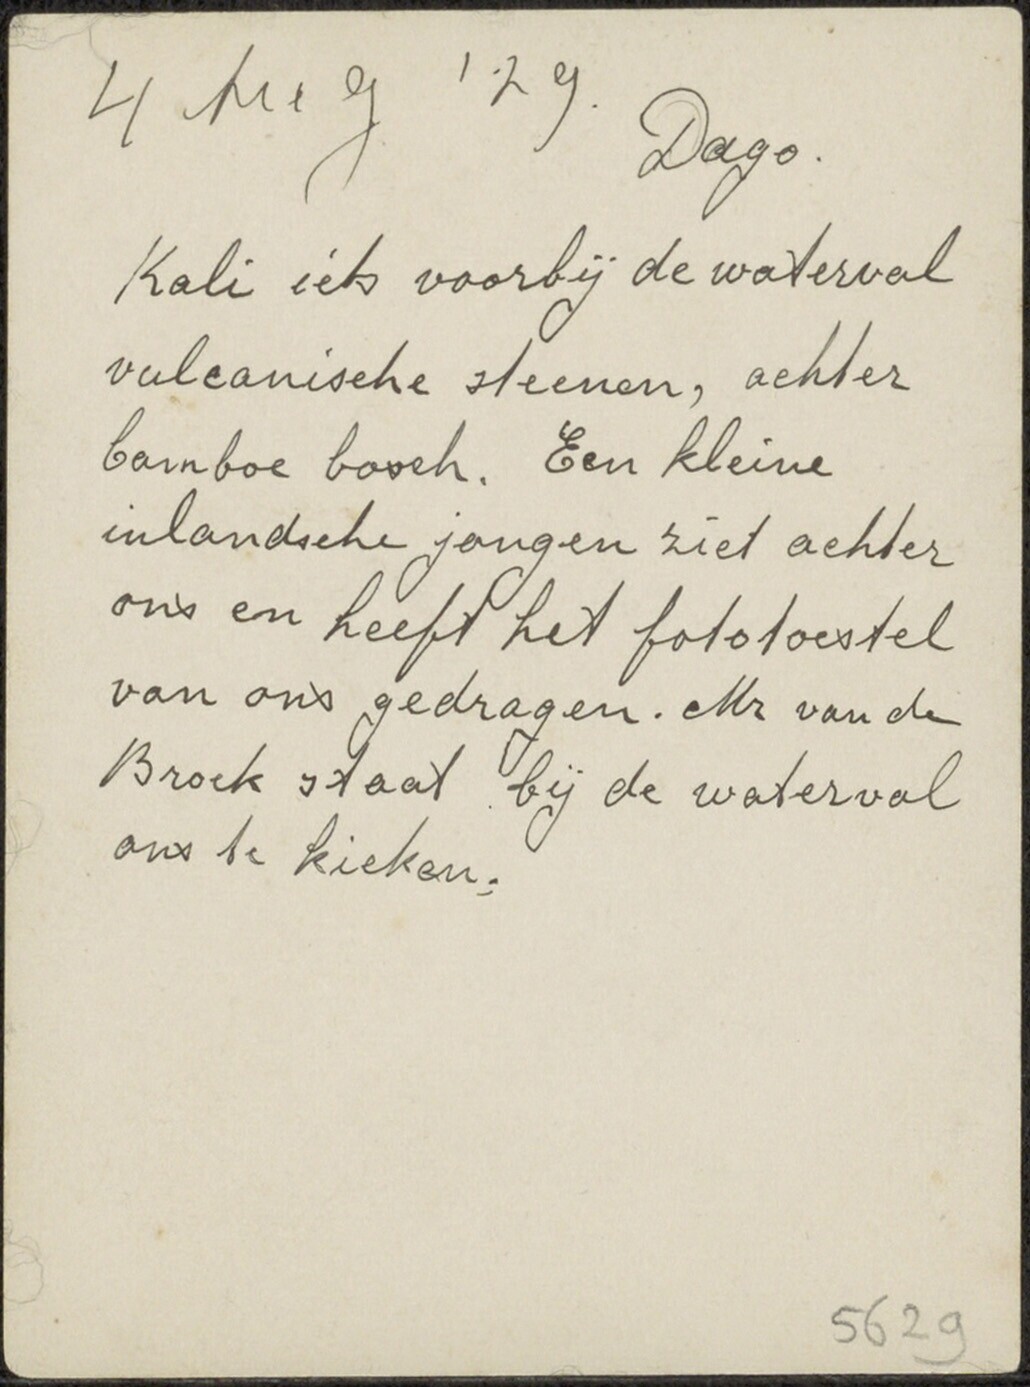 4 Aug '29.
Dago.
Kali iets voorbij de waterval
vulcanische steenen, achter
bamboe bosch. Een kleine
inlandsche jongen ziet achter
ons en heeft het fototoestel
van ons gedragen. Mr van de
Broek staat bij de waterval
ons te kieken.
5629